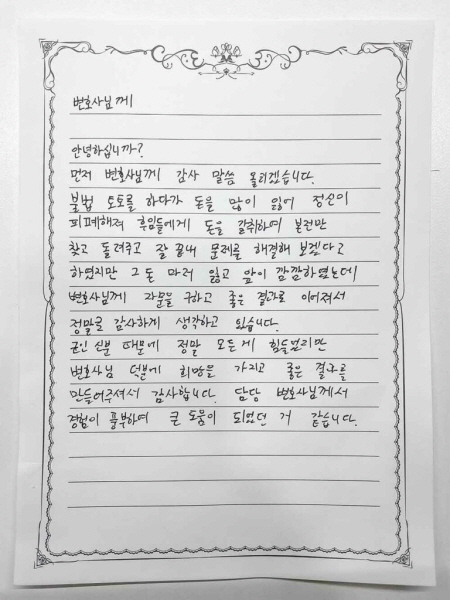 변호사님께
안녕하십니까?
먼저 변호사님께 감사 말씀 올리겠습니다.
불법 토토를 하다가 돈을 많이 잃어 정신이
피폐해져 후임들에게 돈을 갈취하여 본전만
찾고 돌려주고 잘 끝내 문제를 해결해 보겠다고
하였지만 그 돈 마저 잃고 앞이 깜깜하였는데
변호사님께 자문을 구하고 좋은 결과로 이어져서
정말로 감사하게 생각하고 있습니다.
군인 신분 때문에 정말 모든게 힘들었지만
변호사님 덕분에 희망을 가지고 좋은 결과를
만들어주셔서 감사합니다. 담당 변호사님께서
경험이 풍부하여 큰 도움이 되었던 거 같습니다.